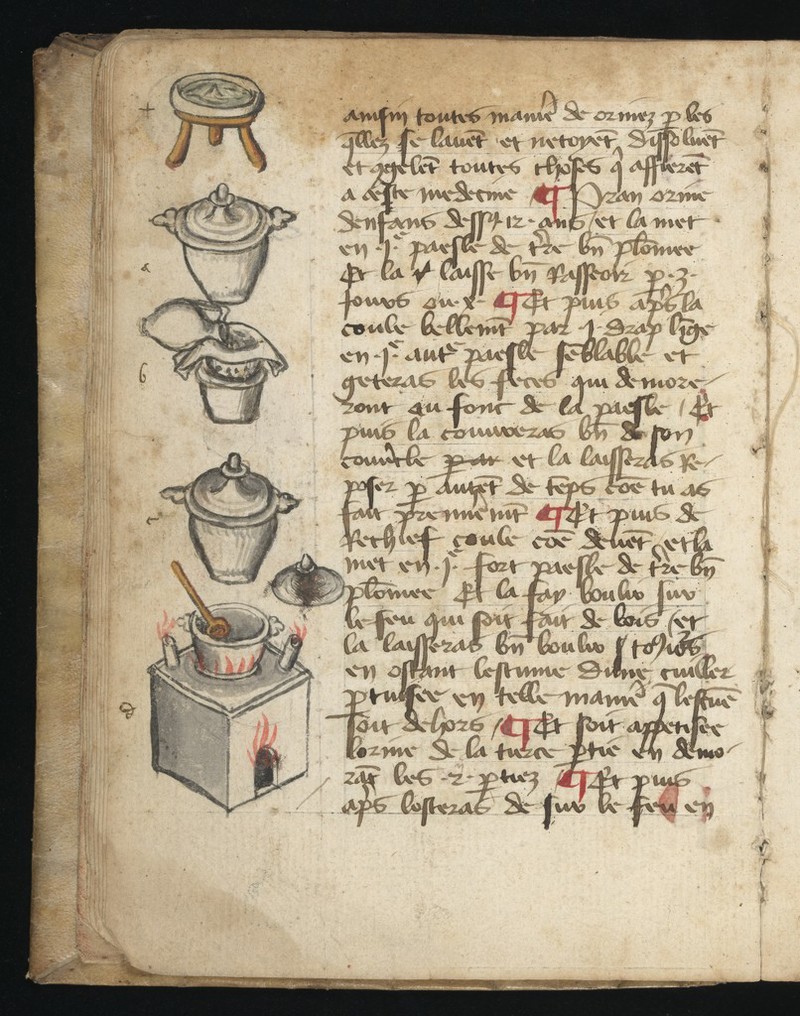 +
a
b
c
d
ainsin toutes manie͛ de orinez p̱ les
q̄llez se lauēt et netoyēt dissoluēt
et ꝯgelēt toutes choses q̄ affierēt
a ceste medecine ¶ Pran orine
denfans dess9 12 ans / et la met
en .Iᵉ. paesle de tr̄e bn̄ plōmee
Et la laisse bn̄ Rasseoir p̱ .3.
jours ou .x. ¶ Et puis ap̄s la
coule bellemt̄ par .I. drap lige
en .Iᵉ. autᵉ paesle sēblable et
geteras les feces qui demore-
ront ou fonc de la paesle / Et
puis la couureras bn̄ de son
couu̾cle par et la laisseras Re-
poser p̱ autēt de tēps cōe tu as
fait premiemt̄ ¶ Et puis de
Rechief coule cōe deuēt / et la
met en .Iᵉ. fort paesle de tr̄e bn̄
plōmee Et la fay boulir sur
le feu qui soit fait de bois / et
la laisseras bn̄ boulir
en ostant lescume dune cuiller
p̱tuisee en telle manie͛ q̄ lescūe
soit dehors / ¶ Et soit appetisee
lorine de la tierce p̱tie en demo-
rāt les .2. p̱tiez ¶ Et puis
ap̄s losteras de sur le feu en